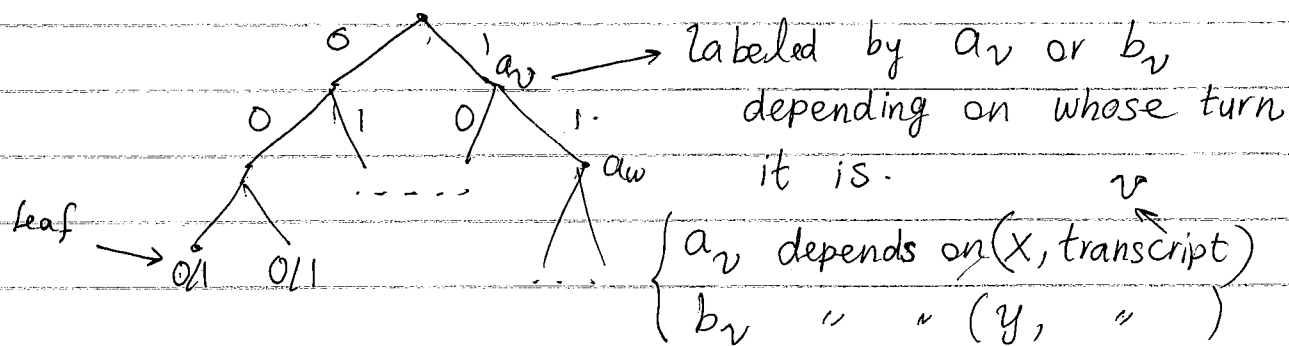 0 1
a_v → Labeled by a_v or b_v
0 1 0 1. depending on whose turn
a_w it is.
leaf v
0/1 0/1 { a_v depends on (x, transcript)
b_v " " (y, " )